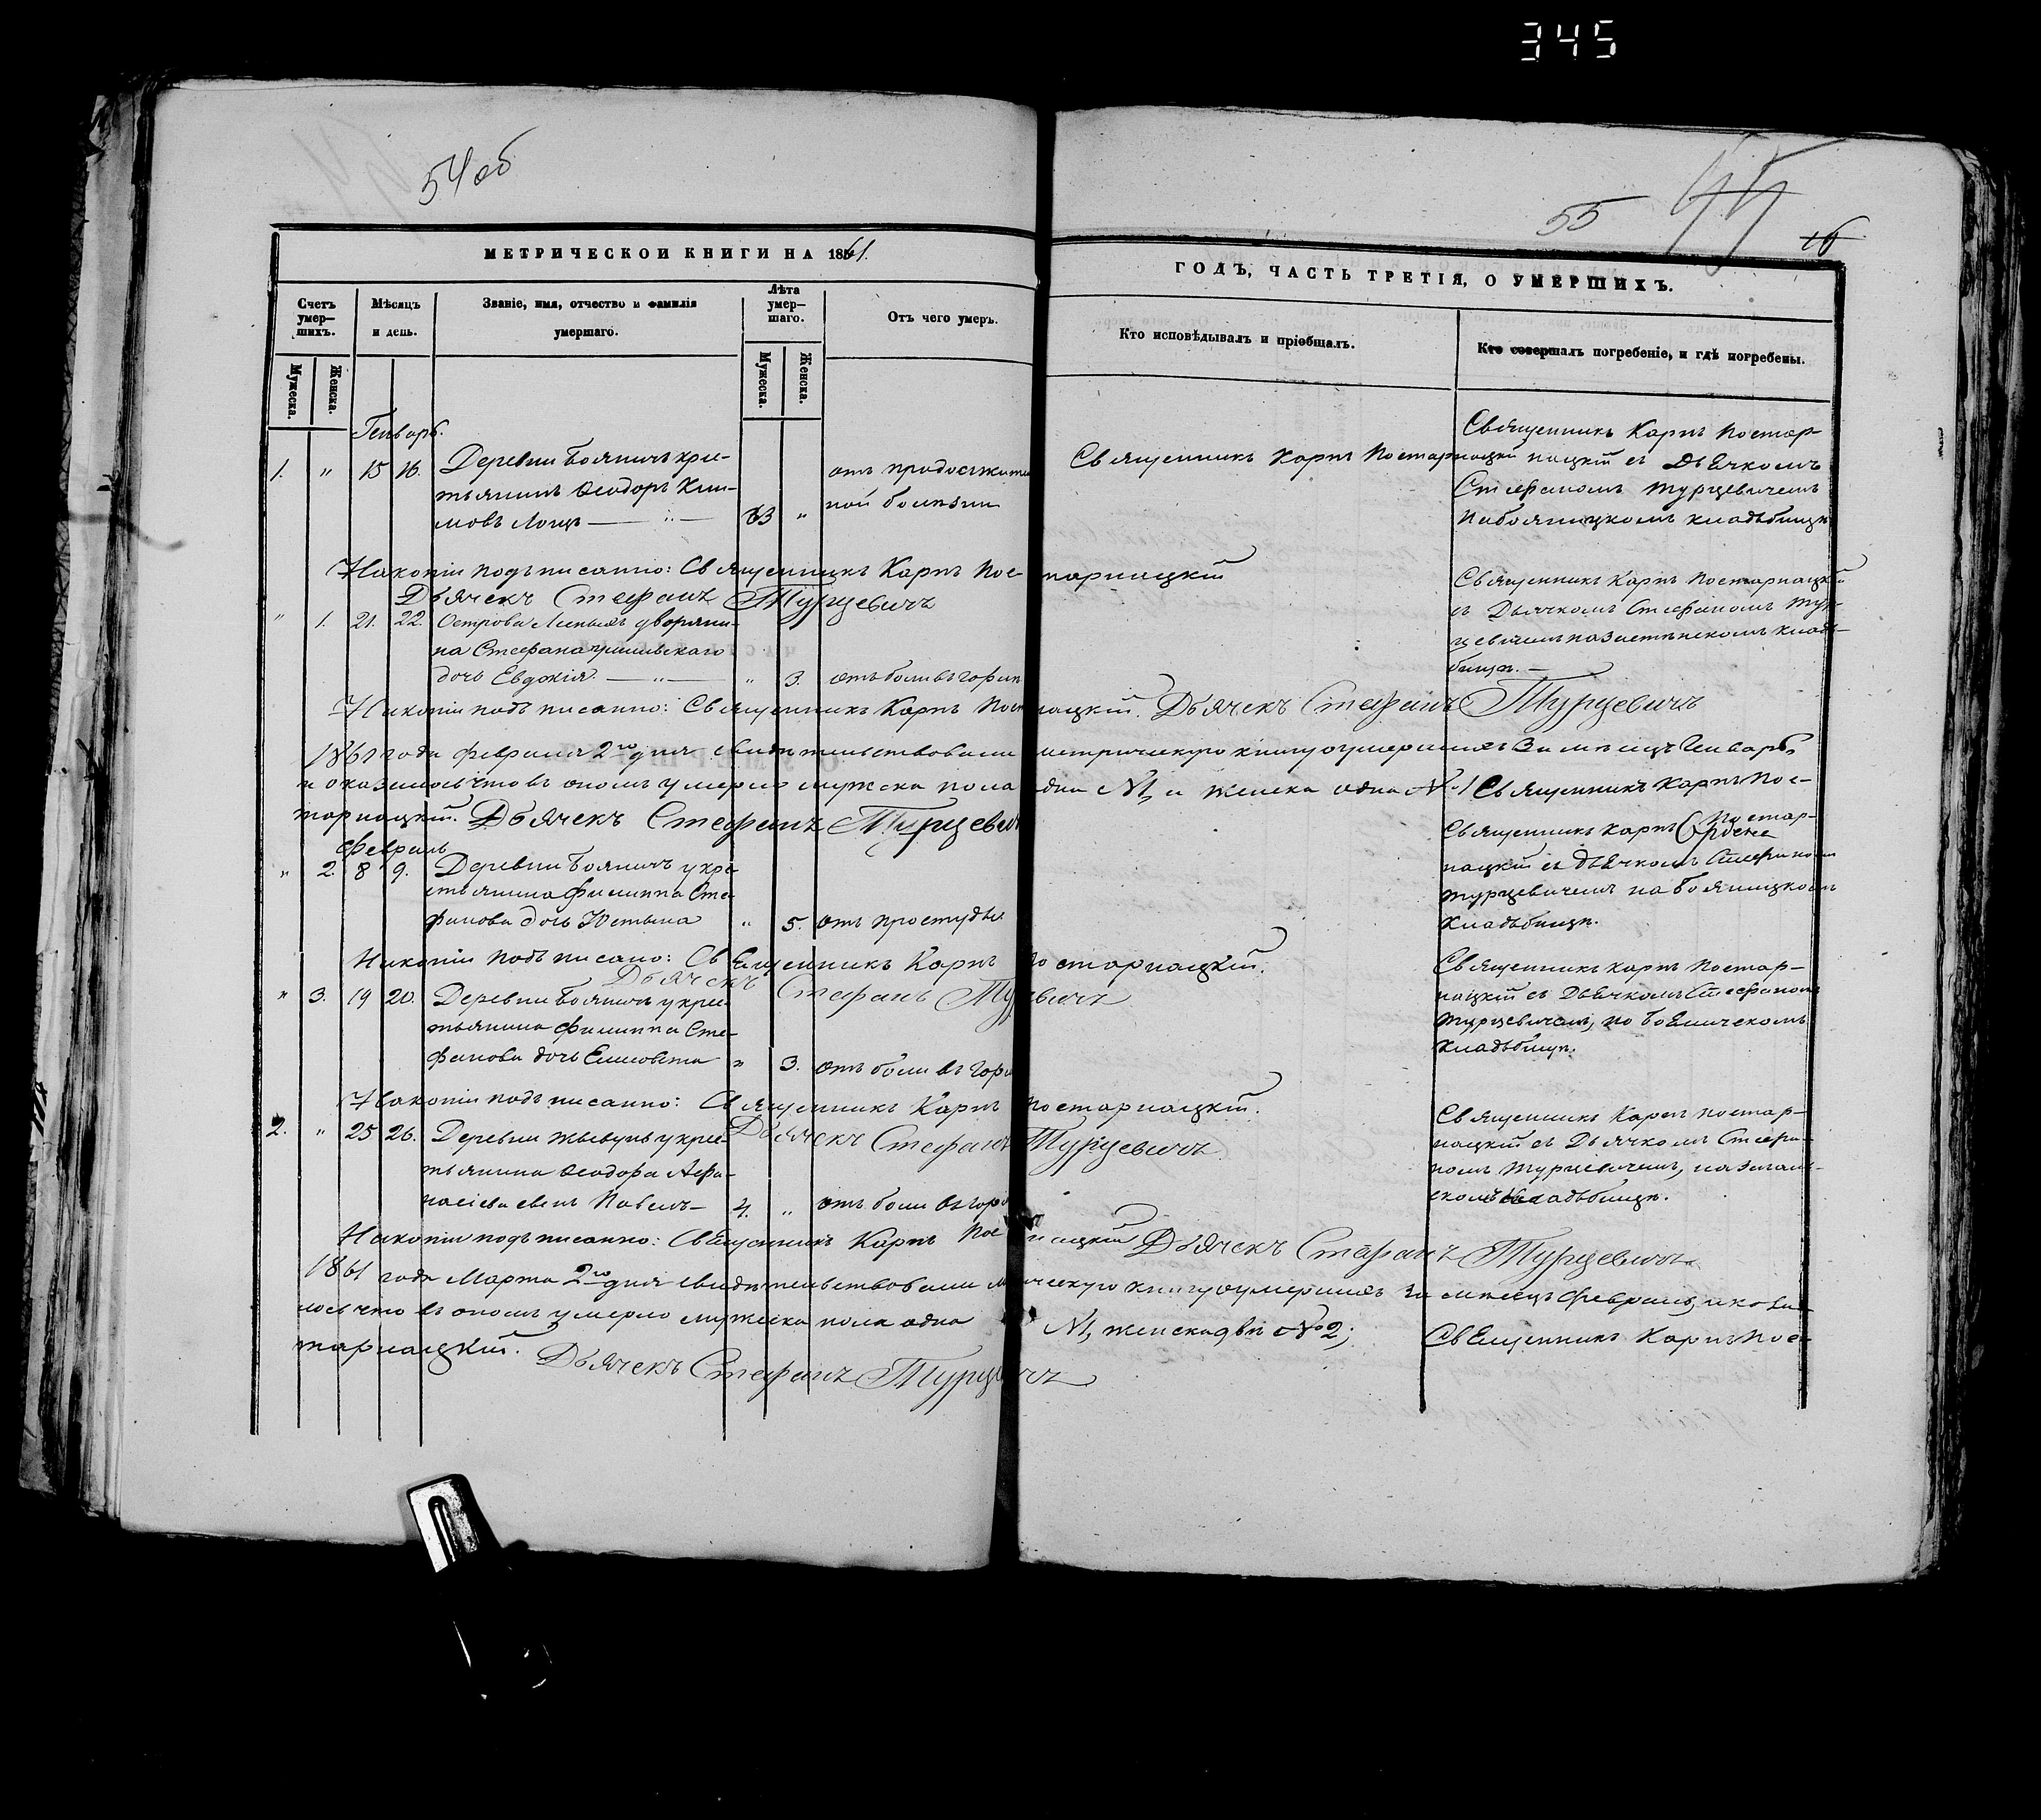 345
54 об
55
16
МЕТРИЧЕСКОЙ КНИГИ НА 1861.
ГОДЪ, ЧАСТЬ ТРЕТІЯ, О УМЕРШИХЪ.
Счетъ умер-шихъ.
Мѣсяцъ и день.
Званіе, имя, отчество и фамилія умершаго.
Лѣта умер-шаго.
Отъ чего умеръ.
Кто исповѣдывалъ и пріобщалъ.
Кто совершалъ погребеніе, и гдѣ погребены.
Мужеска.
Женска.
Мужеска.
Женска.
Генварь.
1. " 15 16. Деревни Бояничъ кре-
стьянинъ Ѳеодоръ Кли-
мовъ Лощ — " — 63 "
отъ продолжител
ной болѣзни
Священникъ Карпъ Постарнацкій
Священникъ Карпъ Постар-
нацкій съ Дьячкомъ
Стефаномъ Турцевичемъ
На Бояницкомъ кладбищѣ
На копіи подъписанно: Священникъ Карпъ Постарнацкій
Дьячекъ Стефанъ Турцевичъ
" 1. 21. 22. Острова дворяни-
на Стефана
дочь Евдокія — " — " 3. отъ боли въ горлѣ
Священникъ Карпъ Постарнацкій
съ Дьячкомъ Стефаномъ Тур-
цевичемъ на клад-
бищѣ. —
На копіи подъ писанно: Священникъ Карпъ Постарнацкій. Дьячекъ Стефанъ Турцевичъ
1861 года февраля 2го дня свидѣтельствовали метрическую книгу о умершихъ за мѣсяцъ Генварь,
и оказалось что въ ономъ умерло мужска пола одна №1, и женска одна №1 Священникъ Карпъ Пос-
тарнацкій. Дьячекъ Стефанъ Турцевичъ
Февраль
" 2. 8 9. Деревни Бояничъ у кре-
стьянина Филиппа Сте-
фанова дочь Юстына " 5. отъ простуды
Священникъ Карпъ Постар-
нацкій съ Дьячкомъ Стефаномъ
Турцевичемъ на Бояницкомъ
кладбищѣ.
На копіи подъ писано: Священникъ Карпъ Постарнацкій.
Дьячекъ Стефанъ Турцевичъ
" 3. 19 20. Деревни Бояничъ у кре-
стьянина Филиппа Сте-
фанова дочь Елисовета " 3. отъ боли въ горлѣ
Священникъ Карпъ Постар-
нацкій съ Дьячкомъ Стефаномъ
Турцевичемъ, на Бояническомъ
кладбищѣ.
На копіи подъ писанно: Священникъ Карпъ Постарнацкій.
Дьячекъ Стефанъ Турцевичъ
2. " 25 26. Деревни у кре-
стьянина Ѳеодора Афа-
насіева сынъ Павелъ — 4. " отъ боли въ горлѣ
Священникъ Карпъ Постар-
нацкій съ Дьячкомъ Стефа-
номъ Турцевичемъ, на
скомъ кладбищѣ.
На копіи подъ писанно: Священникъ Карпъ Постарнацкій Дьячекъ Стефанъ Турцевичъ
1861 года Марта 2го дня свидѣтельствовали метрическую книгу о умершихъ за мѣсяцъ Февраль, и оказа-
лось что въ ономъ умерло мужеска пола одна №1, женска двѣ №2; Священникъ Карпъ Пос-
тарнацкій. Дьячекъ Стефанъ Турцевичъ